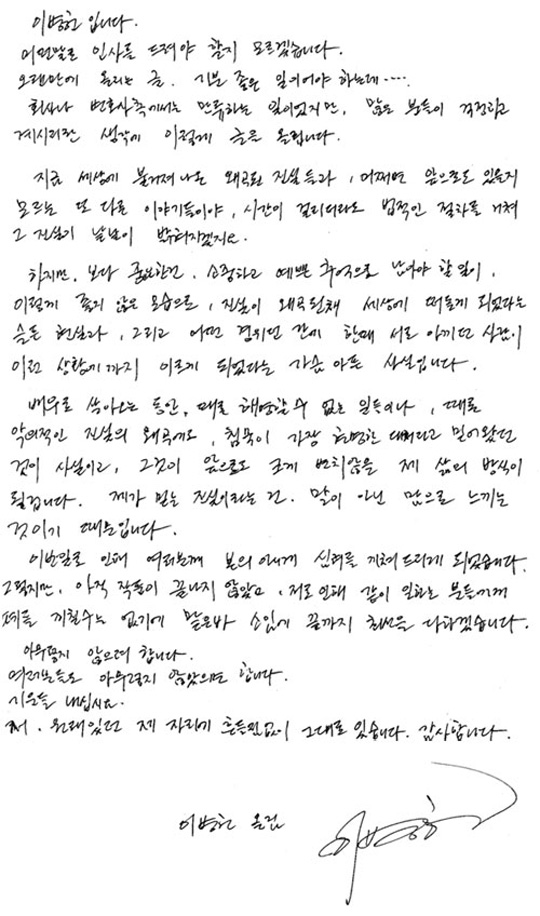 이병헌 입니다.
어떤말로 인사를 드려야 할지 모르겠습니다.
오랜만에 올리는 글. 기분 좋은 일이어야 하는데....
회사나 변호사측에서는 만류하는 일이었지만, 많은 분들이 걱정하고
계시리란 생각에 이렇게 글을 올립니다.
지금 세상에 불거져 나온 왜곡된 진실들과, 어쩌면 앞으로도 있을지
모르는 또 다른 이야기들이야, 시간이 걸리더라도 법적인 절차를 거쳐
그 진실이 낱낱이 밝혀지겠지요.
하지만, 보다 중요한건, 소중하고 예쁜 추억으로 남아야 할 일이,
이렇게 좋지 않은 모습으로, 진실이 왜곡된채 세상에 떠들게 되었다는
슬픈 현실과, 그리고 어떤 경위던 간에 한때 서로 아끼던 사람이
이런 상황에까지 이르게 되었다는 가슴 아픈 사실입니다.
배우로 살아오는 동안, 때로 해명할 수 없는 일들이나, 때로
악의적인 진실의 왜곡에도, 침묵이 가장 현명한 대처라고 믿어왔던
것이 사실이고, 그것이 앞으로도 크게 변치않을 제 삶의 방식이
될겁니다. 제가 믿는 진실이라는 건. 말이 아닌 맘으로 느끼는
것이기 때문입니다.
이번일로 인해 여러분께 본의 아니게 심려를 끼쳐 드리게 되었습니다.
그렇지만, 아직 작품이 끝나지 않았고, 저로 인해 같이 일하는 분들에게
폐를 끼칠수는 없기에 맡은바 소임에 끝까지 최선을 다하겠습니다.
아무렇지 않으려 합니다.
여러분들도 아무렇지 않았으면 합니다.
기운들 내십시요.
저. 원래있던 제 자리에 흔들림없이 그대로 있습니다. 감사합니다.
이병헌 올림